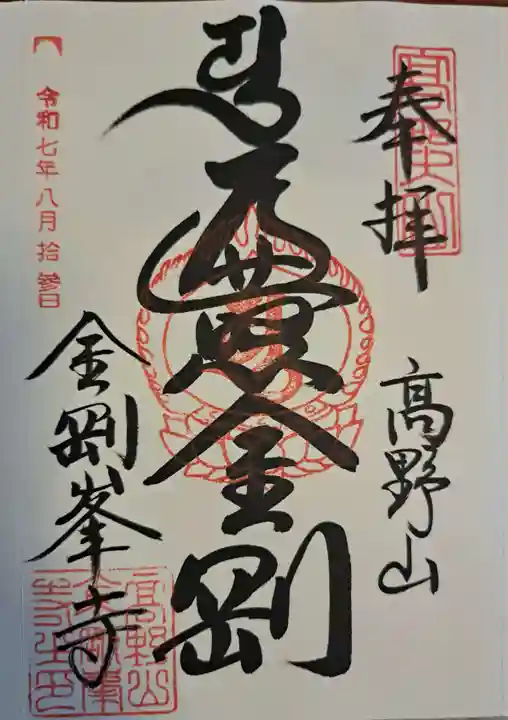 奉拝
高野山
遍照金剛
令和七年八月拾參日
金剛峯寺